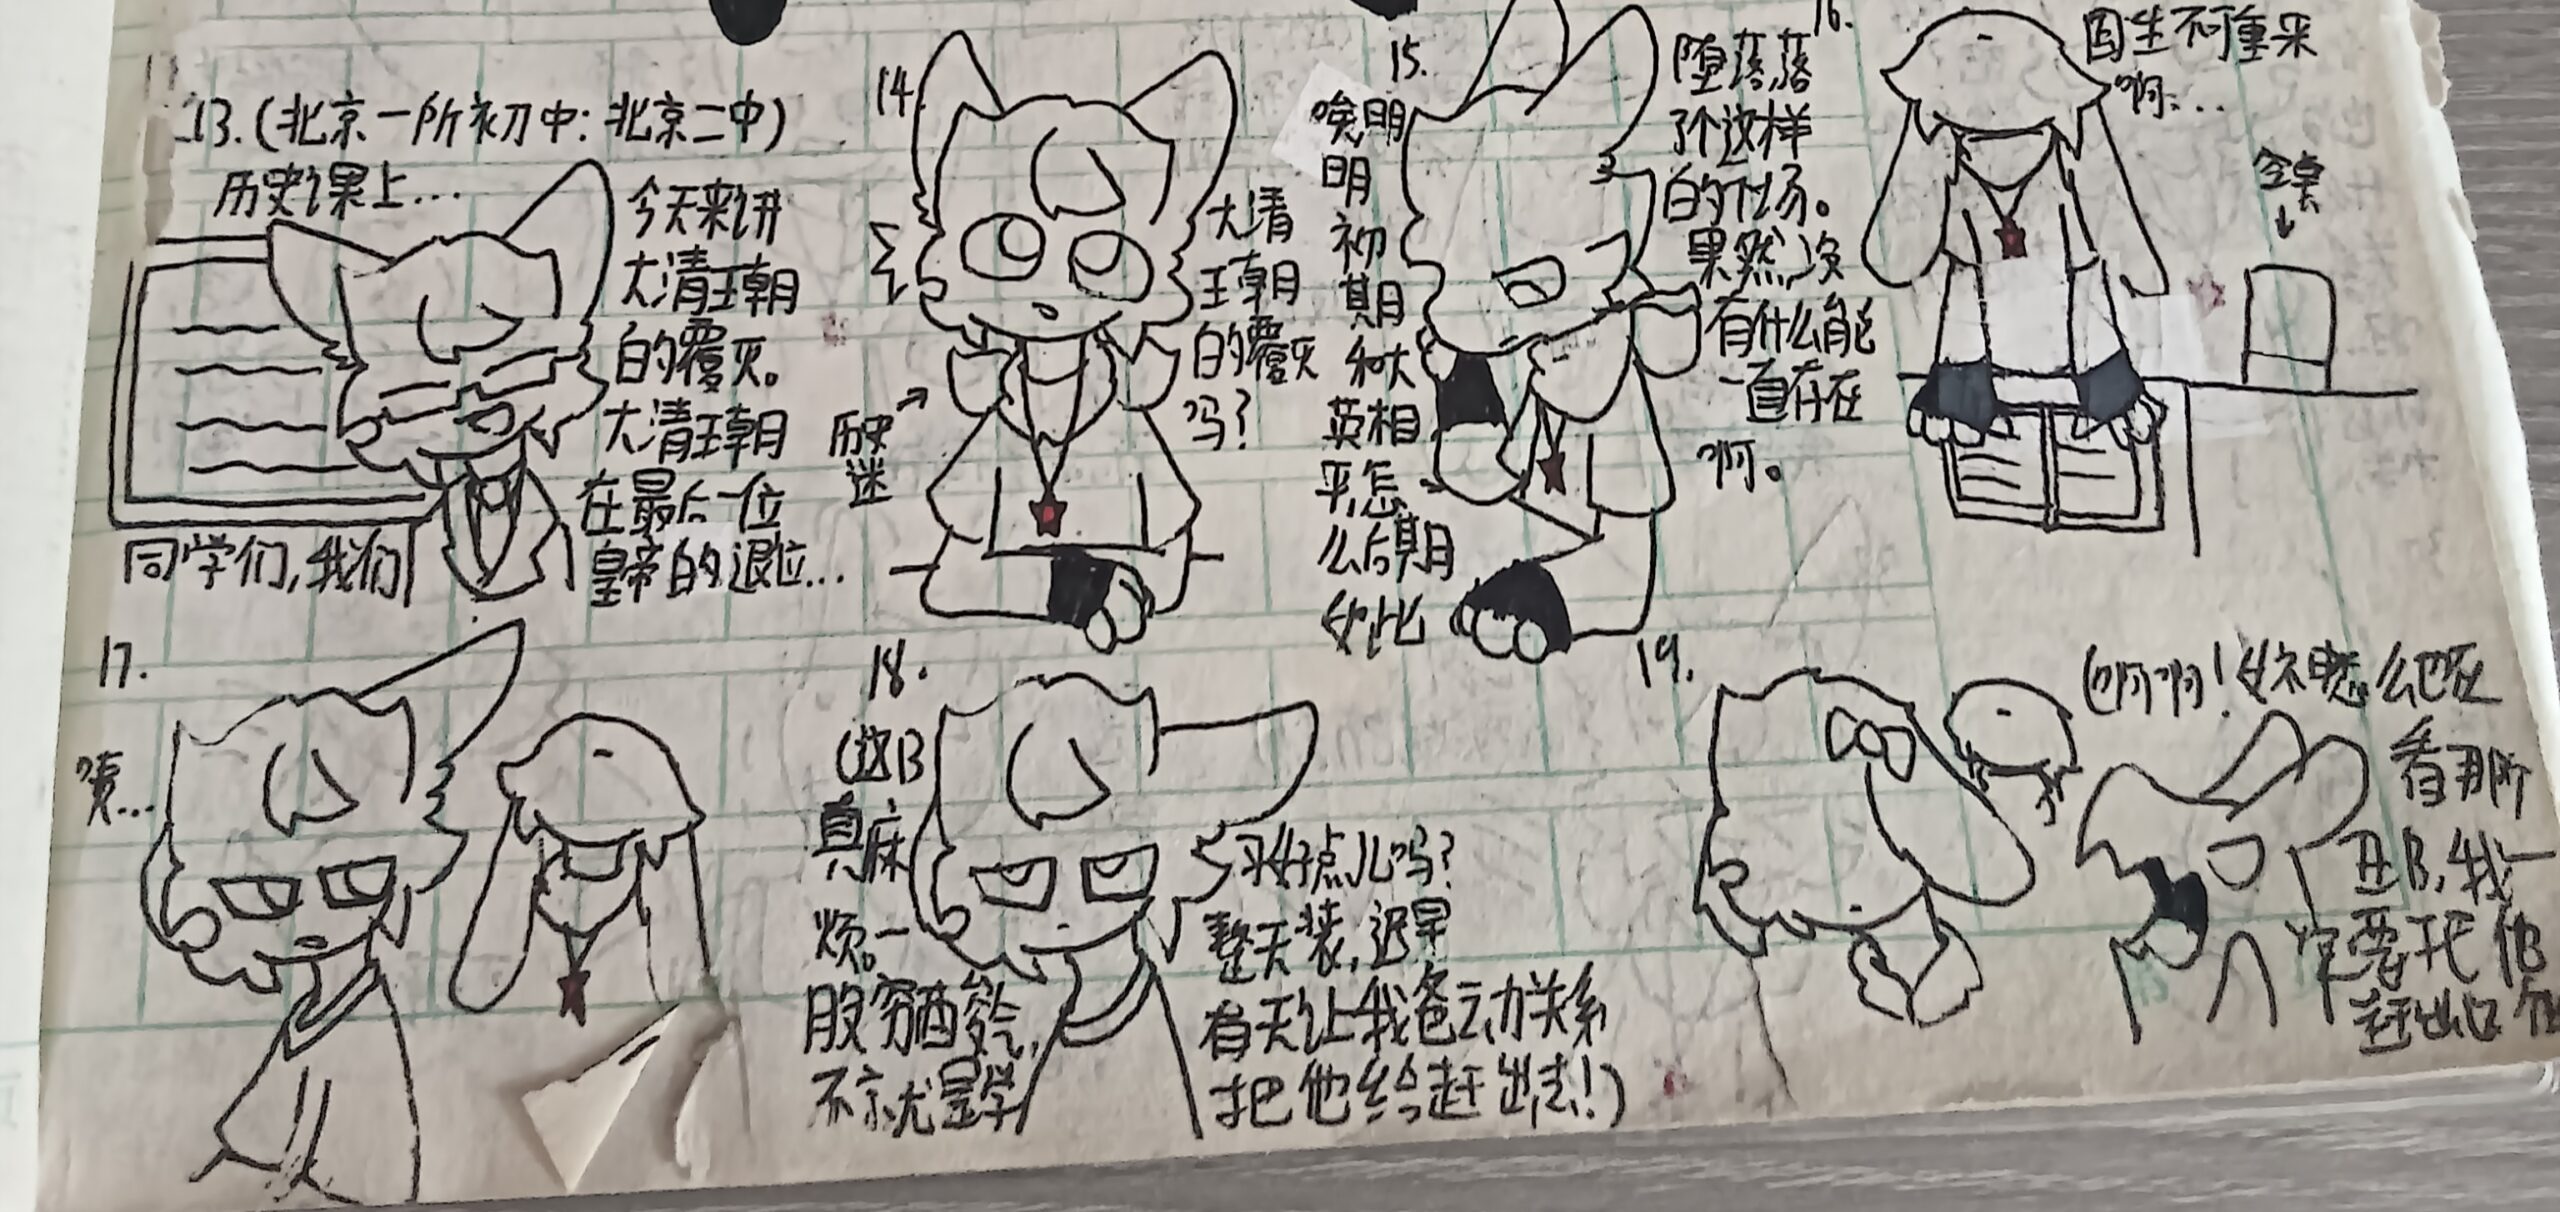 13.(北京一所初中:北京二中)
历史课上...
同学们,我们
今天来讲
大清王朝
的覆灭。
大清王朝
在最后一位
皇帝的退位...
14.
历史
迷
大清
王朝
的覆灭
吗?
15.
唉,明
明
初
期
和大
英相
平,怎
么后期
如此
堕落,落
了个这样
的下场。
果然,没
有什么能
一直存在
啊。
16.
国生不可重来
啊...
空桌
17.
啧...
18.
(这B
真麻
烦。一
股穷酸气,
不就是学
习好点儿吗?
整天装,迟早
有天让我爸动关系
把他给赶出去!)
19.
(啊啊!
看那
丑B,我一
定要把他
赶出